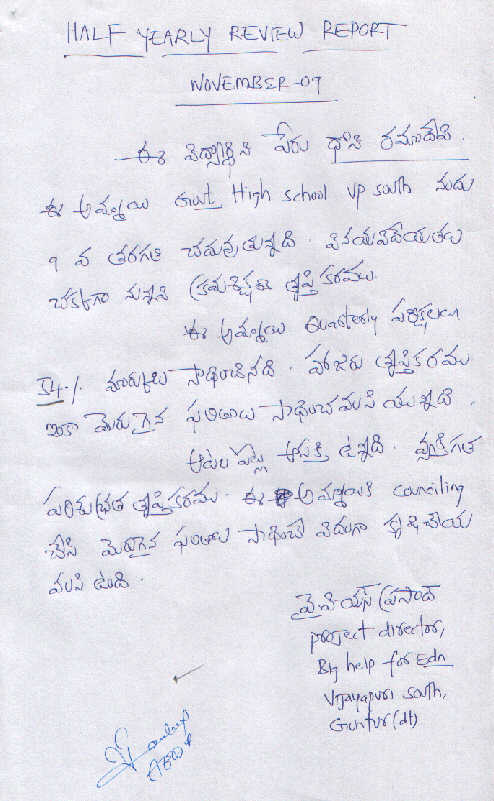 HALF YEARLY REVIEW REPORT
NOVEMBER-07
ఈ విద్యార్థిని పేరు ధోని రమాదేవి.
ఈ అమ్మాయి Govt High school VP south నుదు
9 వ తరగతి చదువుతున్నది. వినయవిధేయతలు
చక్కగా నున్నవి క్రమశిక్షణ తృప్తికరము.
ఈ అమ్మాయి Quarterly పరీక్షలలో
54·/. మార్కులు సాధించినది. హాజరు తృప్తికరము
ఇంకా మెరుగైన ఫలితాలు సాధించవలసియున్నది.
ఆటల పట్ల ఆసక్తి ఉన్నది. వ్యక్తిగత
పరిశుభ్రత తృప్తికరము. ఈ అమ్మాయికి counciling
చేసి మెరుగైన ఫలితాలు సాధించే విధంగా కృషిచేయ
వలసి ఉంది.
వై వి యస్ ప్రసాద్
project director,
Big help for Edn
Vijayapuri south,
Guntur (dt)